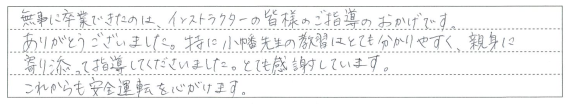 無事に卒業できたのは、インストラクターの皆様のご指導のおかげです。
ありがとうございました。特に小幡先生の教習はとても分かりやすく、親身に
寄り添って指導してくださいました。とても感謝しています。
これからも安全運転を心がけます。